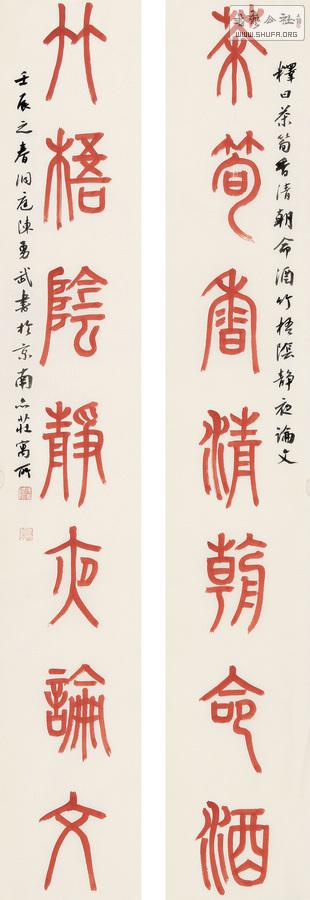 茶筍香清朝命酒
釋曰茶筍香清朝命酒竹梧陰靜夜論文
竹梧陰靜夜論文
壬辰之春洞庭陳勇武書於京南亦莊寓所
WWW.SHUFA.ORG